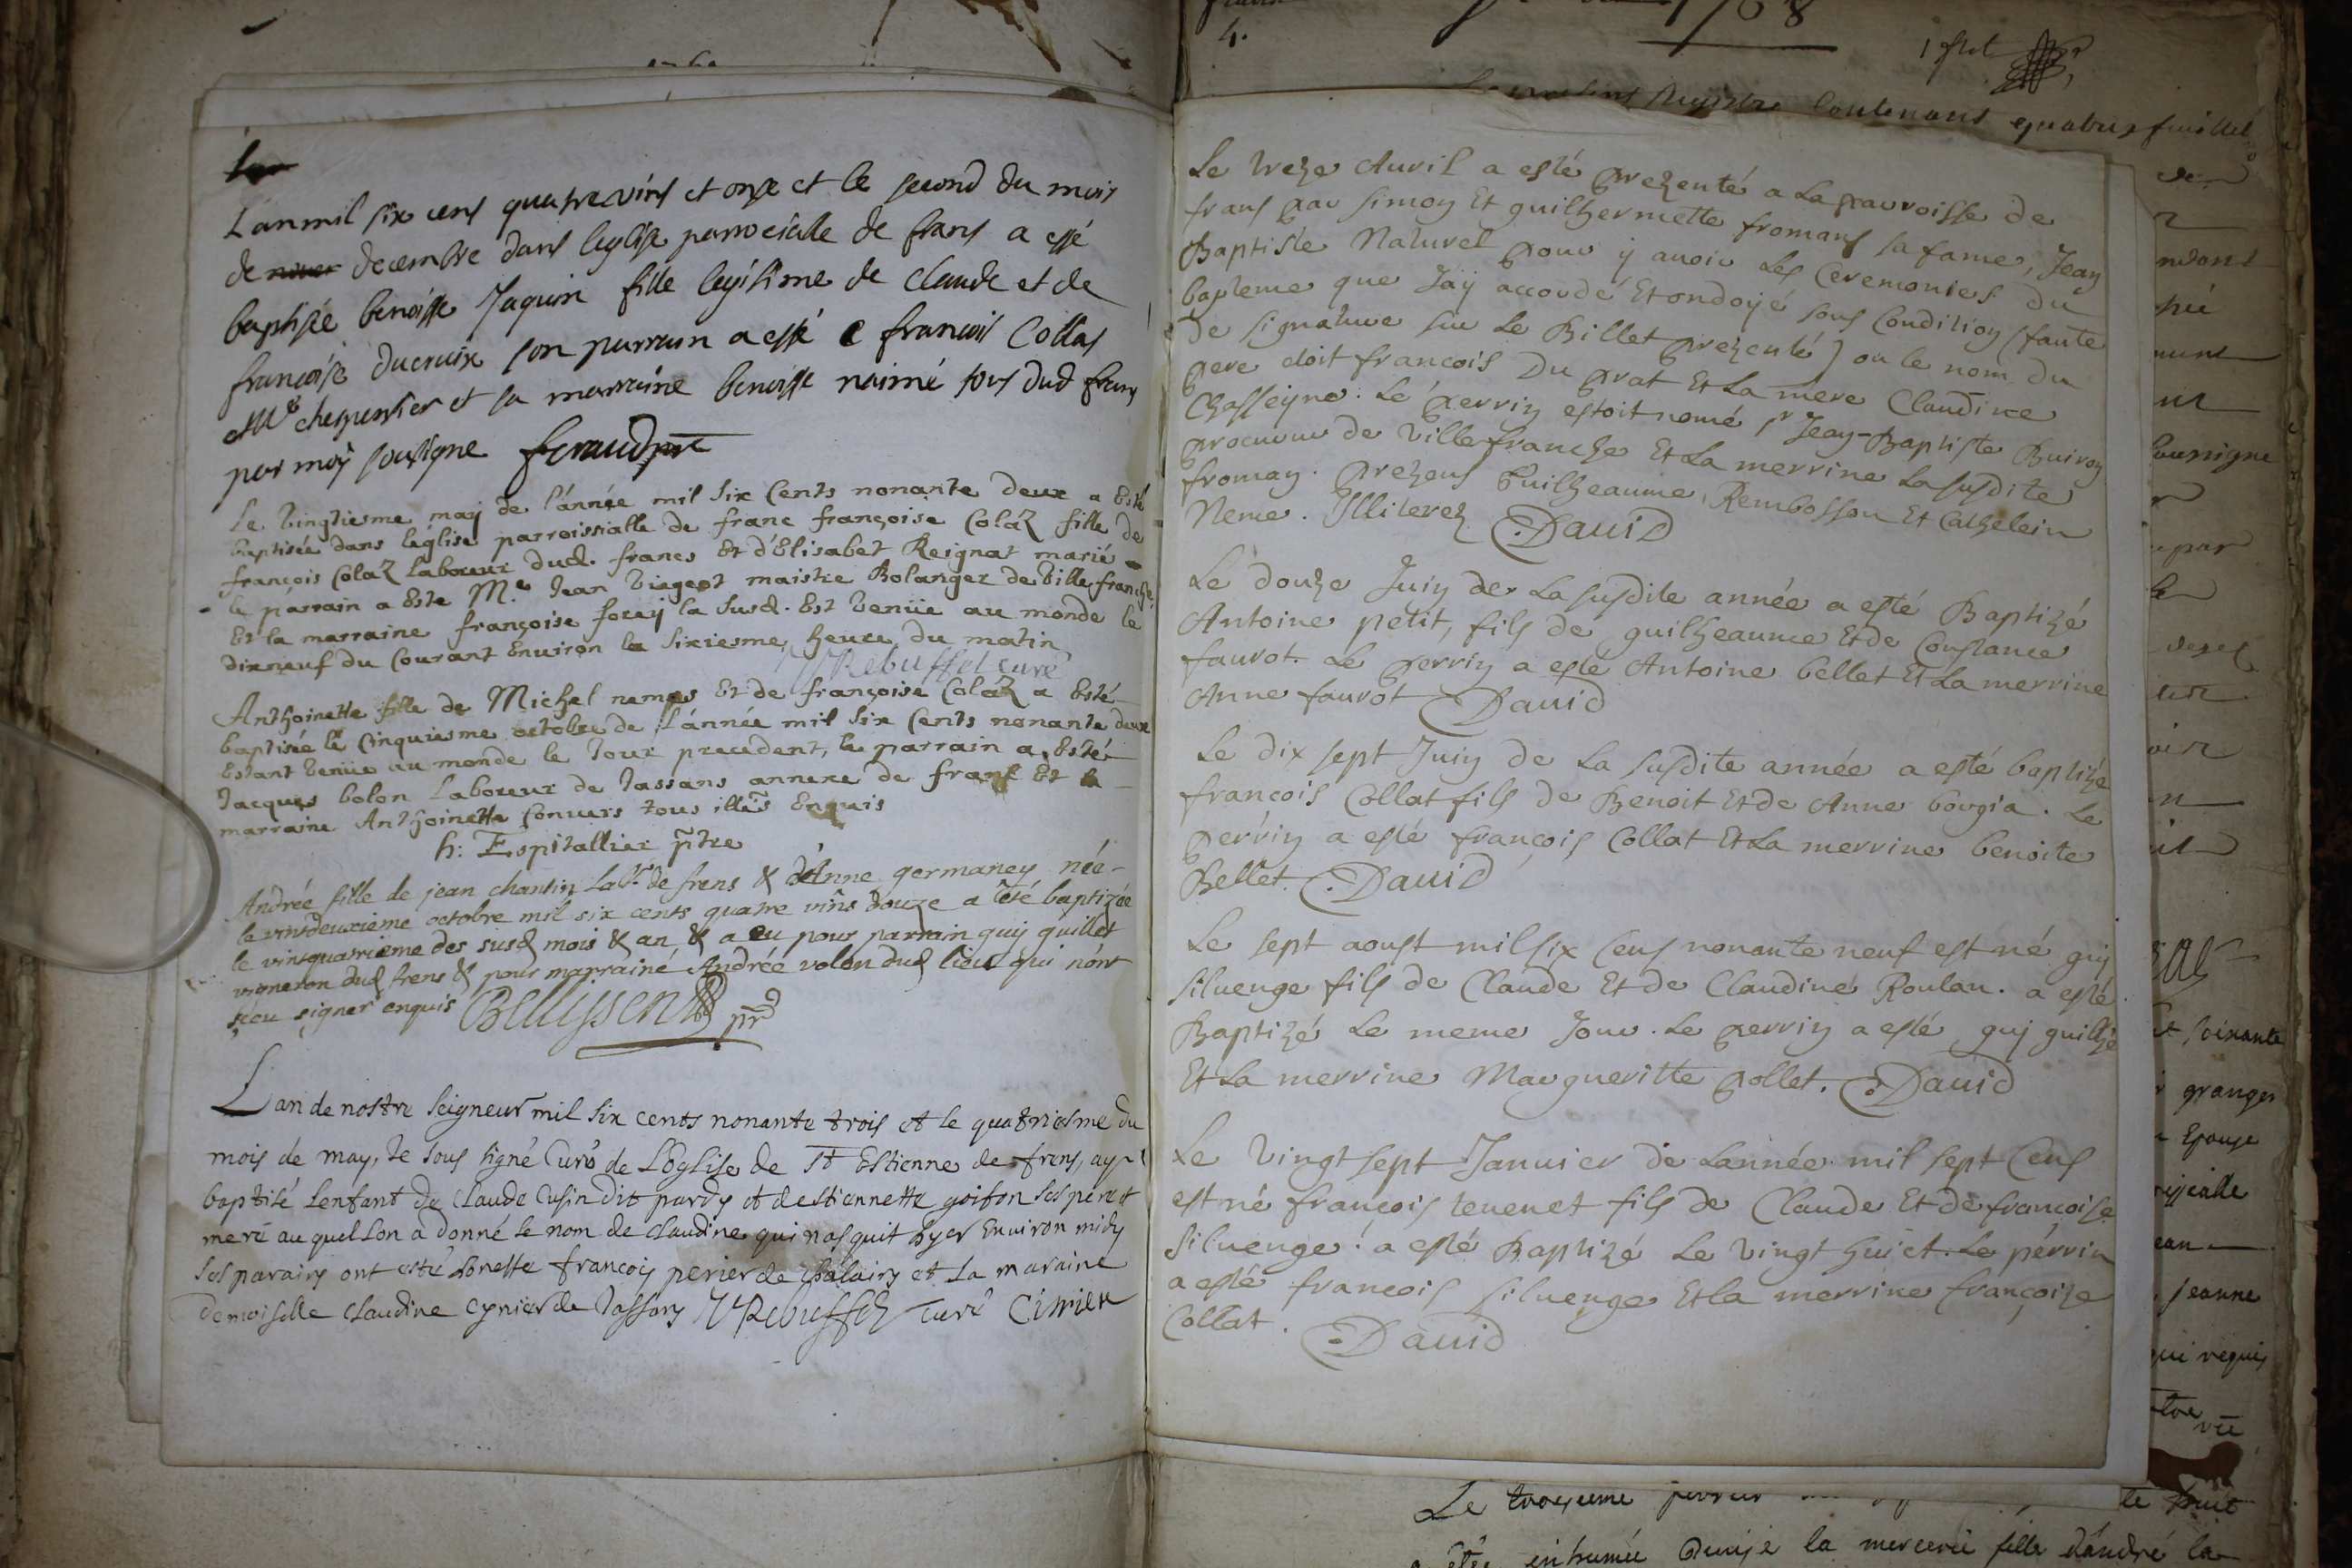 L'an mil six cens quatre vins et onze et le second du mois
de decembre dans leglise parrociale de frans a esté
baptisée benoisse Jaquin fille legitime de Claude et de
francoise ducruix son parrain a esté francois Collas
et sa marraine benoisse naimé tous dud frans
par moy soussigne feraud ptre
Le vingtiesme may de l'année mil six Cents nonante deux a Esté
baptisée dans l'église parroissialle de franc françoise Coláz fille de
françois Coláz Laboureur dud. francs Et d'Elisabet Reignat marié
le parrain a Este M.e Jean bigeot maistre Bolanger de Villefranche,
Et la marraine françoise forey la susd. Est venüe au monde le
dixneuf du Courant Environ la sixiesme heure du matin
Rebuffel curé
Anthoinette fille de Michel nemos Et de françoise Coláz a Esté
baptisée le Cinquiesme octobre de L'année mil six Cents nonante deux
Estant venüe au monde le Jour precedent, le parrain a Esté
Jacques bolon Laboureur de Jassans annexe de frans Et la
marraine Anthoinette Convers tous illes Enquis
h: Espitallier ptre
Andrée fille de jean chantin Labr. de frens & d'Anne germaney née
le vintdeuxieme octobre mil six cents quatre vins douze a été baptizée
le vintquatrieme des susd mois & an, & a eu pour parrain guy guillet
vigneron dud frens & pour marrainé Andrée volon dud lieu qui n'ont
sçeu signer enquis Bellissent pr
L'an de nostre seigneur mil six cents nonante trois et le quatriesme du
mois de may, Je sous signé Curé de L'Eglise de St Estienne de frens, ay
baptisé lenfant de Claude Cusin dit pardy et destiennette goifon ses pere et
mere au quel Lon a donné le nom de Claudine qui nasquit hyer Environ midy
ses parains ont esté honeste francois perier de Chalains et la maraine
demoiselle Claudine Cynier de Jassans Rebuffel Curé
4.
1768
Le present Registre Contenant quatre feuillets
Le treze Auril a esté prezenté a La parroisse de
frans par simon Et guilhermette fromans sa fame, Jean
Baptiste Naturel pour y auoir Les Ceremonies du
bapteme que J'aÿ accordé Et ondoyé sous Condition (faute
de signature sur Le Billet prezenté) ou le nom du
pere etoit francois Du prat Et La mere Claudine
Chasseyne. Le perrin estoit nomé sr Jean-Baptiste Buiron
procureur de Villefranche Et La merrine La susdite
froman. prezens Guilheaume Rembosson Et Cathelein
Neme. Illiterez David
Le douze Juin de La susdite année a esté Baptizé
Antoine petit, fils de guilheaume Et de Constance
faurot. Le perrin a este Antoine bellet Et La merrine
Anne faurot David
Le dix sept Juin de La susdite année a esté baptizé
francois Collat fils de Benoit Et de Anne borgia. Le
perrin a esté françois Collat Et La merrine benoite
Bellet. David
Le sept aoust mil six Cens nonante neuf est né guy
siluenge fils de Claude Et de Claudine Roulan. a esté
Baptizé Le meme Jour. Le perrin a esté guy guilhe
Et La merrine Margueritte pollet. David
Le Vingt sept Januier de Lannée mil sept Cens
est né françois tenenet fils de Claude Et de francoise
siluenge. a esté Baptizé Le vingt huict. Le perrin
a esté francois siluenge Et la merrine françoize
Collat. David
soixante
granger
Epouse
jeanne
qui requis
le huit
a été inhumée la mercerie fille d'andré la